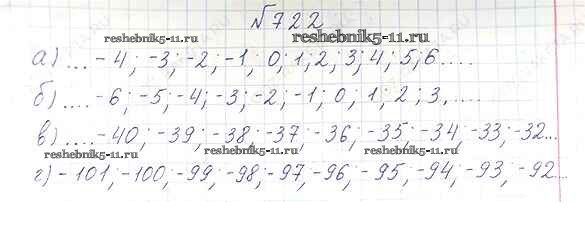 №722
reshebnik5-11.ru reshebnik5-11.ru
а) ... -4; -3; -2; -1; 0; 1; 2; 3; 4; 5; 6 ....
б) .... -6; -5; -4; -3; -2; -1; 0; 1; 2; 3, .....
reshebnik5-11.ru
в) .... -40; -39; -38; -37; -36; -35; -34, -33; -32...
reshebnik5-11.ru reshebnik5-11.ru reshebnik5-11.ru
г) -101; -100; -99; -98; -97; -96; -95; -94; -93; -92...